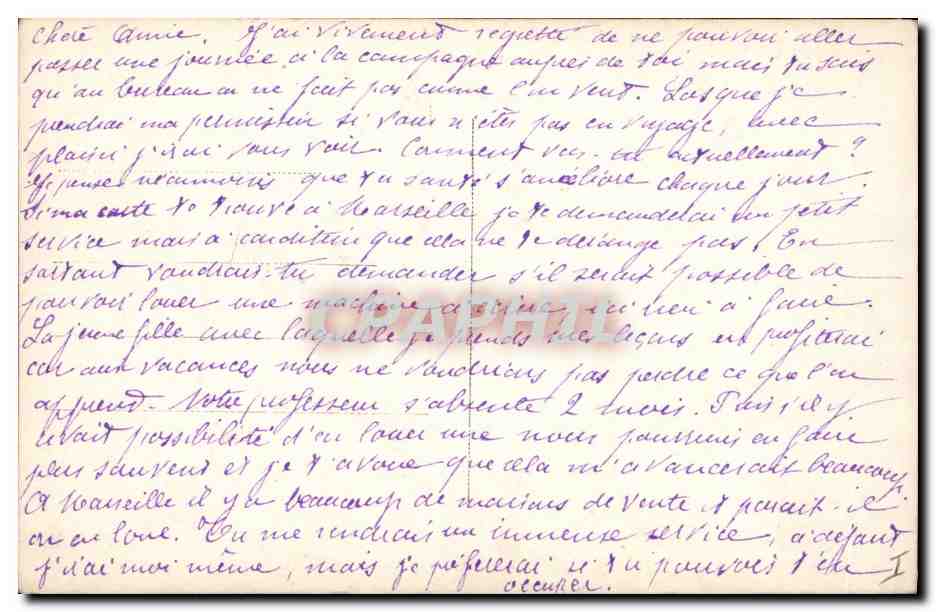 chère Amie. J'ai vivement regretté de ne pouvoir aller
passer une journée à la campagne auprès de toi mais tu sais
qu'au bureau on ne fait pas comme l'on veut. Lorsque je
prendrai ma permission si vous n'êtes pas en voyage, avec
plaisir j'irai vous voir. Comment vas-tu actuellement ?
Je pense néanmoins que ta santé s'améliore chaque jour.
Si ma carte te trouve à Marseille je te demanderai un petit
service mais à condition que cela ne te dérange pas. En
sortant voudrais-tu demander s'il serait possible de
pouvoir louer une machine à écrire, ici moi à Gaie.
La jeune fille avec laquelle je prends mes leçons en profiterai
car aux vacances nous ne voudrions pas perdre ce que l'on
apprend. Notre professeur s'absente 2 mois. Puis s'il y
avait possibilité d'en louer une nous pourrions en faire
plus souvent et je t'avoue que cela m'avancerait beaucoup.
A Marseille il y a beaucoup de maisons de vente et parait-il
on en loue. Tu me rendrais un immense service, à défaut
j'irai moi même, mais je préfèrerai si tu pouvais t'en
occuper. I
CPAPHIL